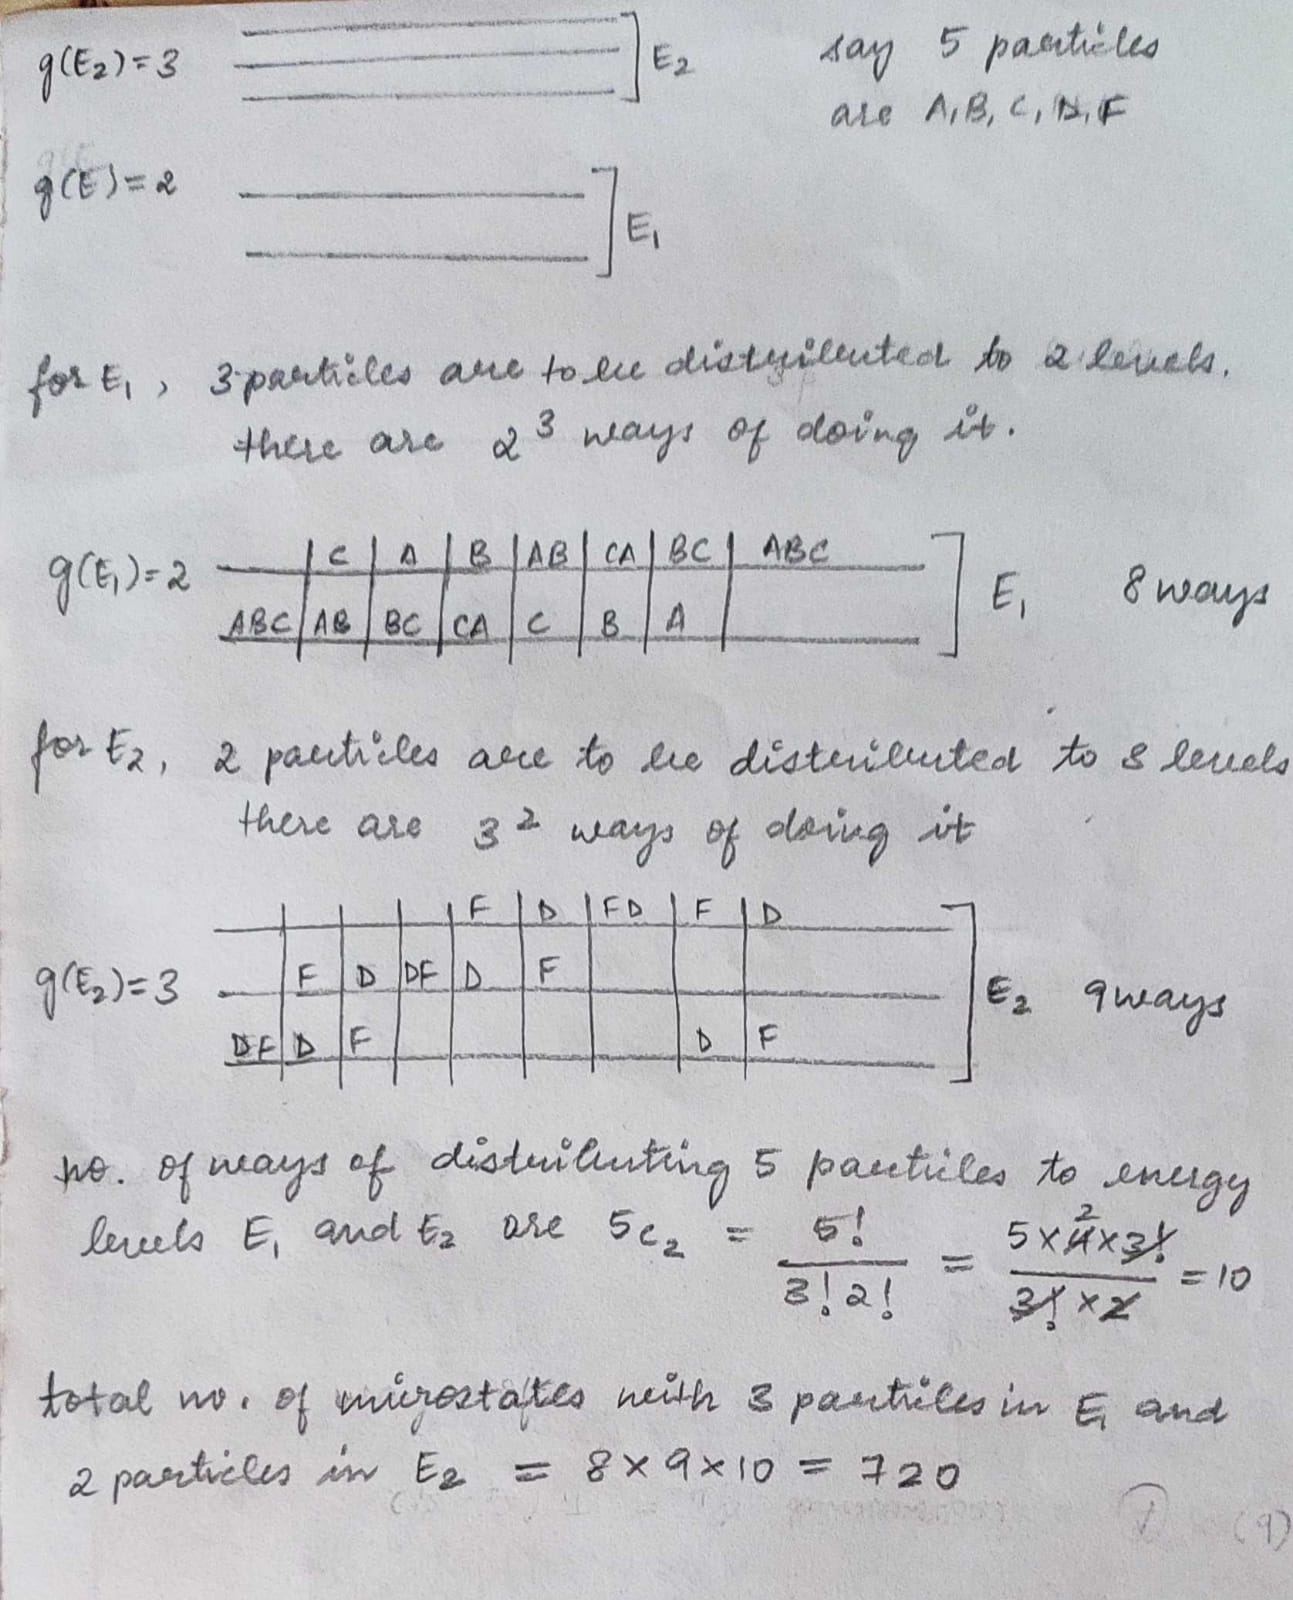 g(E₂)=3 E₂ say 5 particles
are A, B, C, D, F
g(E)=2 E₁
for E₁, 3 particles are to be distributed to 2 levels.
there are 2³ ways of doing it.
C A B AB CA BC ABC
g(E₁)=2 E₁ 8 ways
ABC AB BC CA C B A
for E₂, 2 particles are to be distributed to 3 levels
there are 3² ways of doing it
F D FD F D
g(E₂)=3 F D DF D F E₂ 9 ways
DF D F D F
no. of ways of distributing 5 particles to energy
levels E₁ and E₂ are 5c₂ = 5!/3!2! = 5×4×3!/3!×2 = 10
2
total no. of microstates with 3 particles in E₁ and
2 particles in E₂ = 8×9×10 = 720